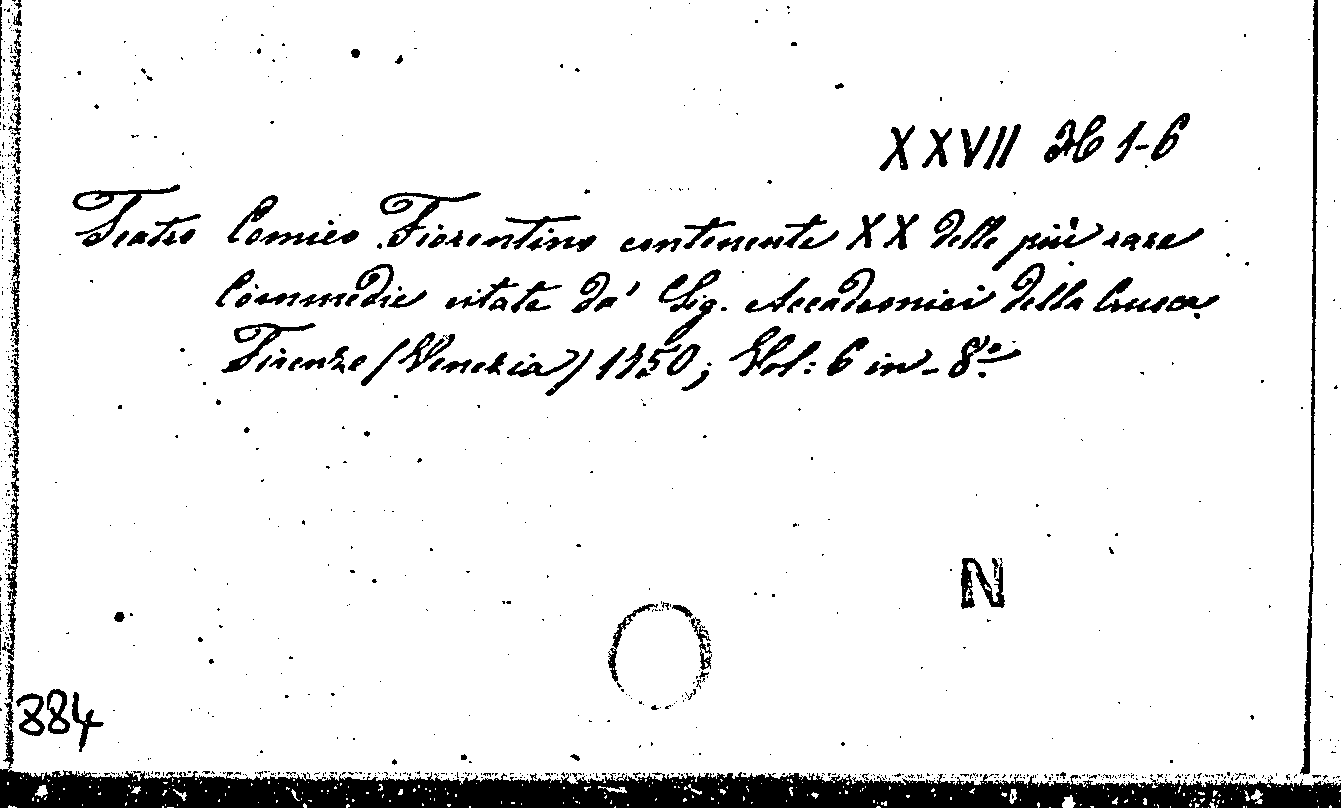 XXVII H 1-6
Teatro Comico Fiorentino contenente XX delle più rare
Commedie citate da' Sig. Accademici della Crusca.
Firenze (Venezia) 1750; Vol: 6 in-8.º
N
884